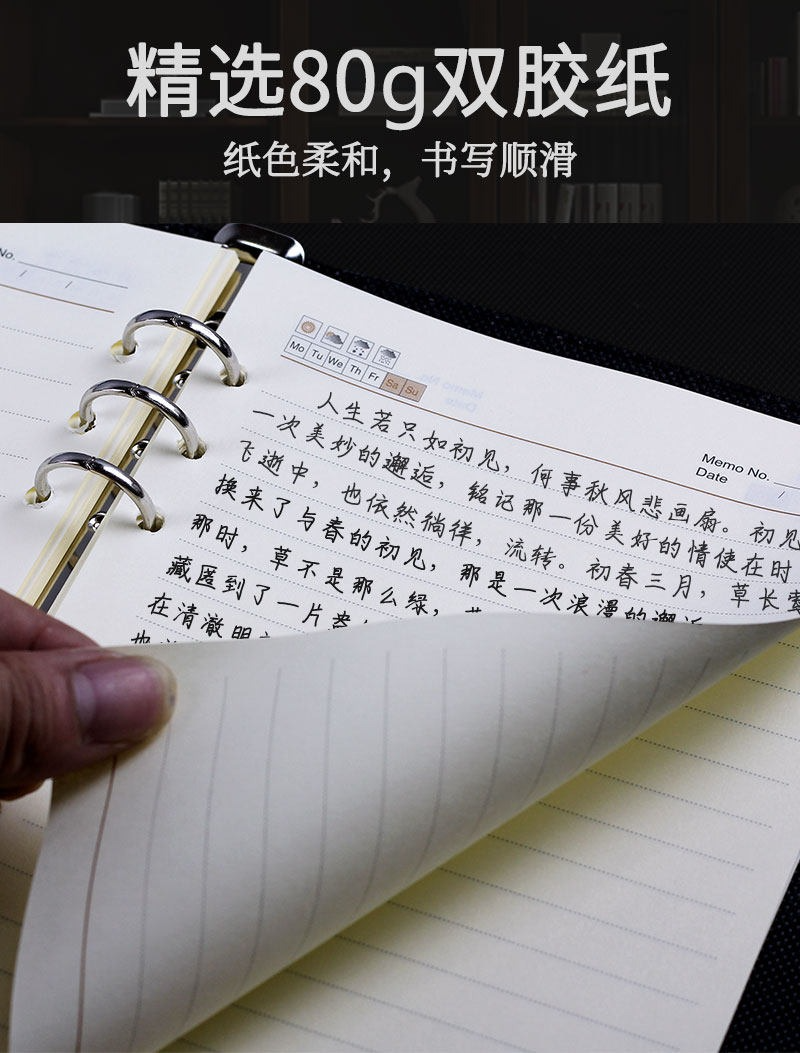 精选80g双胶纸
纸色柔和，书写顺滑
No.
/ /
Mo Tu We Th Fr Sa Su
Memo No.
Date
/
人生若只如初见，何事秋风悲画扇。初见
一次美妙的邂逅，铭记那一份美好的情使在时
飞逝中，也依然徜徉，流转。初春三月，草长莺
换来了与春的初见，那是一次浪漫的邂逅
那时，草不是那么绿，
藏匿到了一片
在清澈明
也